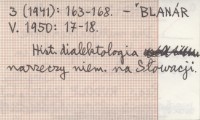 3 (1941): 163-168. – BLANÁR
V. 1950: 17-18.
Hist. dialektologia
narzeczy niem. na Słowacji.